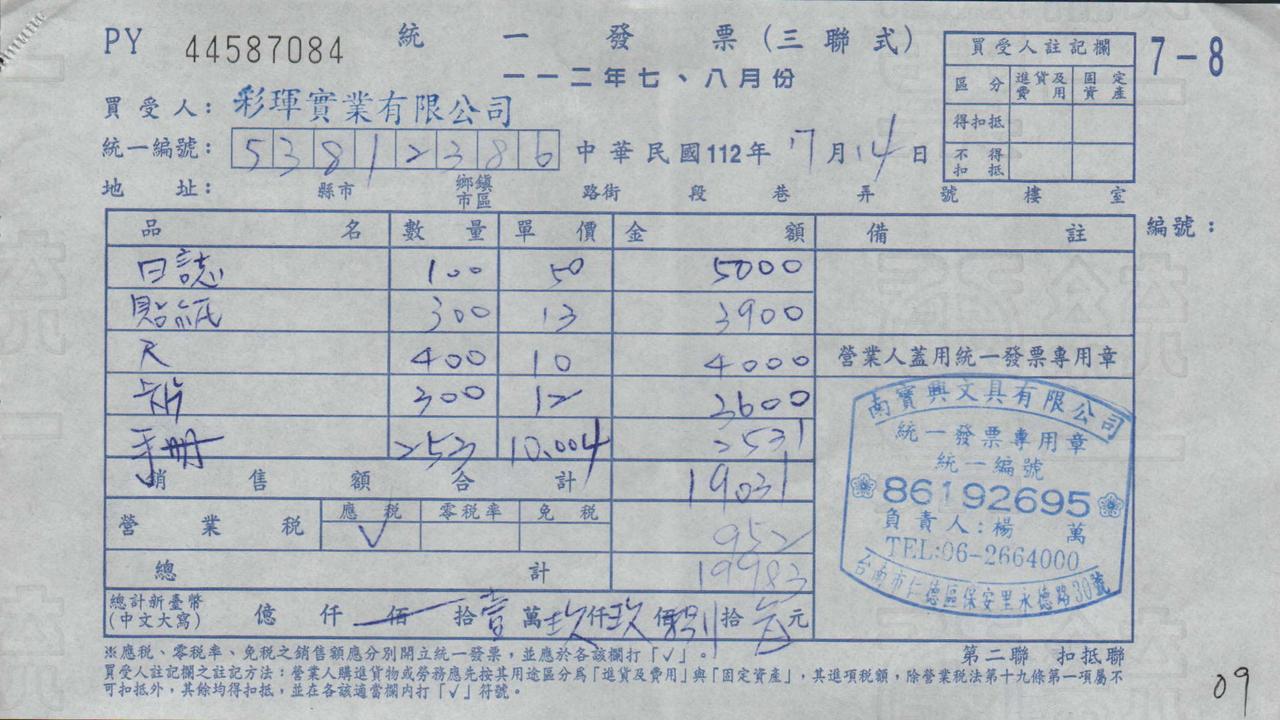 PY 44587084 統一發票(三聯式)
一一二年七、八月份
7-8
買受人註記欄
區分 進貨及費用 固定資產
得扣抵
不得扣抵
買受人: 彩琿實業有限公司
統一編號: 53812386 中華民國112年 7月14日
地址: 縣市 鄉鎮市區 路街 段 巷 弄 號 樓 室
編號:
品名 數量 單價 金額 備註
日誌 100 50 5000
貼紙 300 13 3900
尺 400 10 4000
卡片 300 12 3600
手冊 253 10.004 2531
銷售額合計 19031
營業稅 應稅 √ 零稅率 免稅 952
總計 19983
總計新臺幣(中文大寫) 億 仟 佰 拾壹萬玖仟玖佰捌拾叁元
營業人蓋用統一發票專用章
南寶興文具有限公司
統一發票專用章
統一編號
86192695
負責人:楊 萬
TEL:06-2664000
台南市仁德區保安里永德路30號
※應稅、零稅率、免稅之銷售額應分別開立統一發票,並應於各該欄打「√」。
第二聯 扣抵聯
買受人註記欄之註記方法:營業人購進貨物或勞務應先按其用途區分為「進貨及費用」與「固定資產」,其進項稅額,除營業稅法第十九條第一項屬不
可扣抵外,其餘均得扣抵,並在各該適當欄內打「√」符號。
09